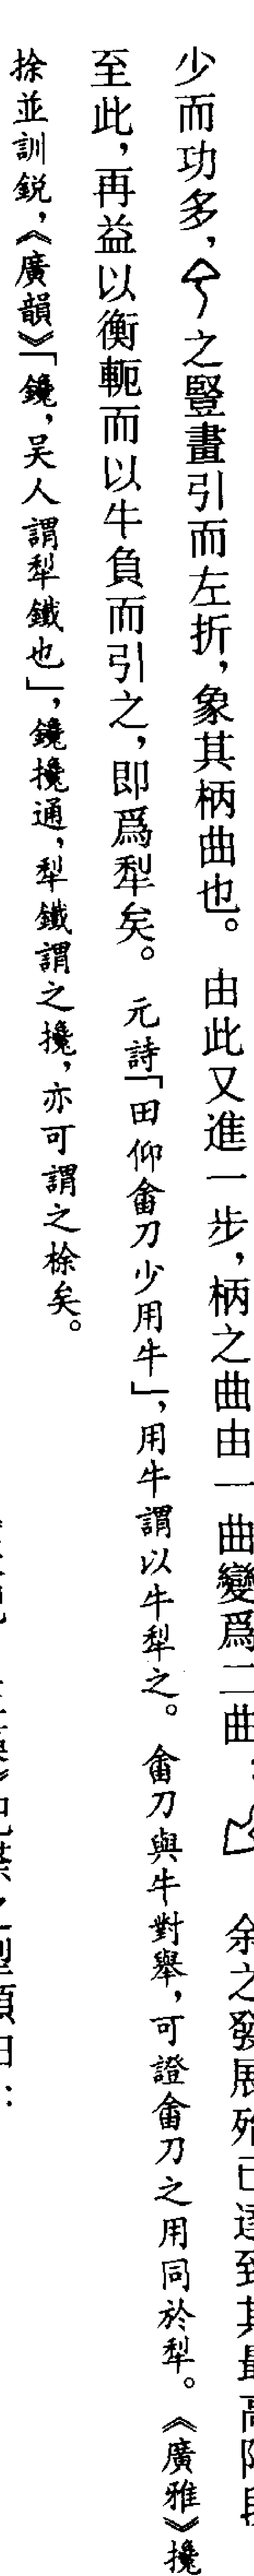 少而功多，之豎畫引而左折，象其柄曲也。　由此又進一步，柄之曲由一曲變爲二曲：　余之發展殆已達到其最高階段
至此，再益以衡軛而以牛負而引之，即爲犁矣。　元詩「田仰畬刀少用牛」，用牛謂以牛犁之。　畬刀與牛對舉，可證畬刀之用同於犁。《廣雅》攙
捈並訓鋭，《廣韻》「鑱，吴人謂犁鐵也」，鑱攙通，犁鐵謂之攙，亦可謂之梌矣。